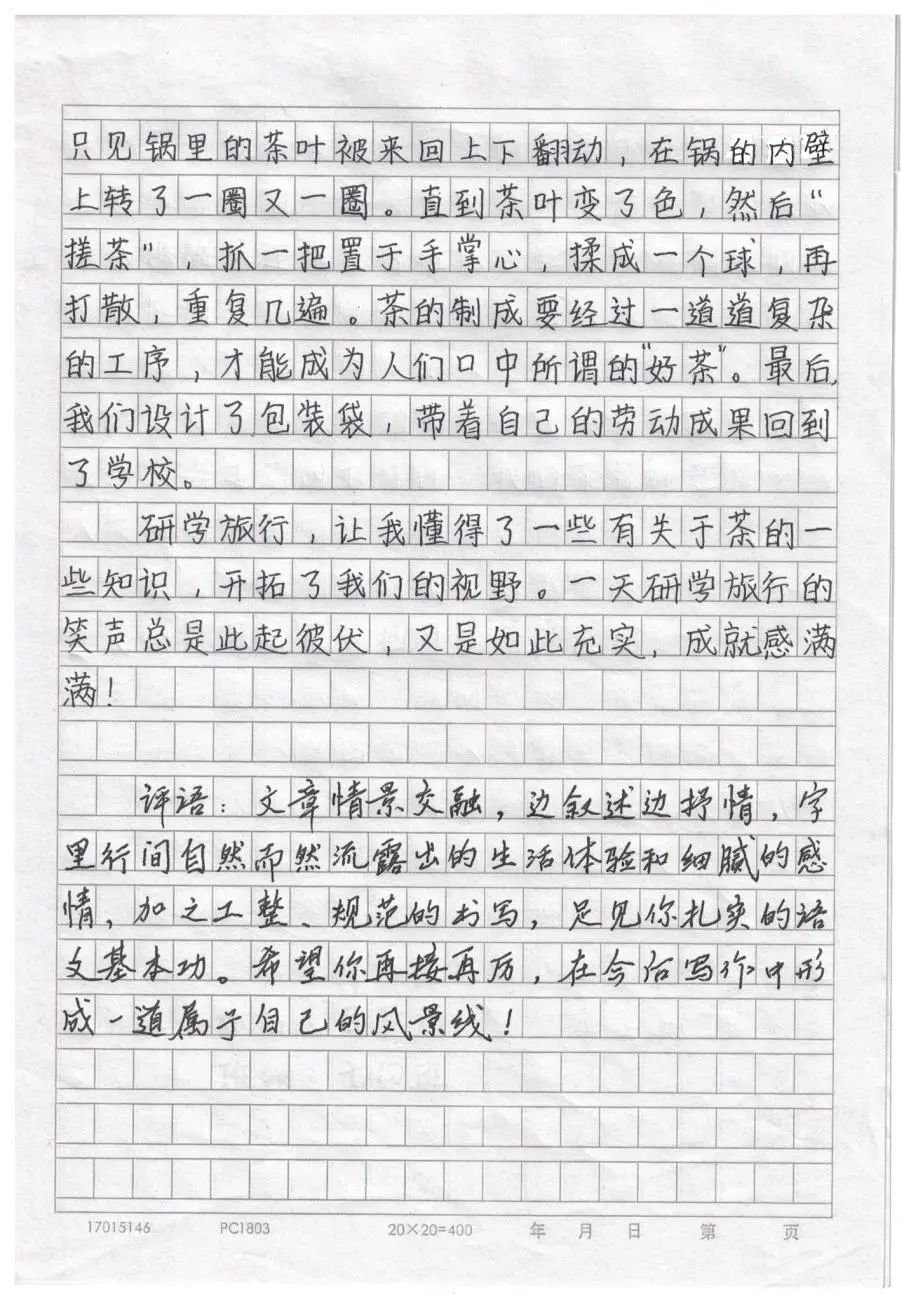 只见锅里的茶叶被来回上下翻动，在锅的内壁
上转了一圈又一圈。直到茶叶变了色，然后“
搓茶”，抓一把置于手掌心，揉成一个球，再
打散，重复几遍。茶的制成要经过一道道复杂
的工序，才能成为人们口中所谓的“好茶”。最后，
我们设计了包装袋，带着自己的劳动成果回到
了学校。
研学旅行，让我懂得了一些有关于茶的一
些知识，开拓了我们的视野。一天研学旅行的
笑声总是此起彼伏，又是如此充实，成就感满
满！
评语：文章情景交融，边叙述边抒情，字
里行间自然而然流露出的生活体验和细腻的感
情，加之工整、规范的书写，足见你扎实的语
文基本功。希望你再接再厉，在今后写作中形
成一道属于自己的风景线！
17015146 PC1803 20×20=400 年 月 日 第 页